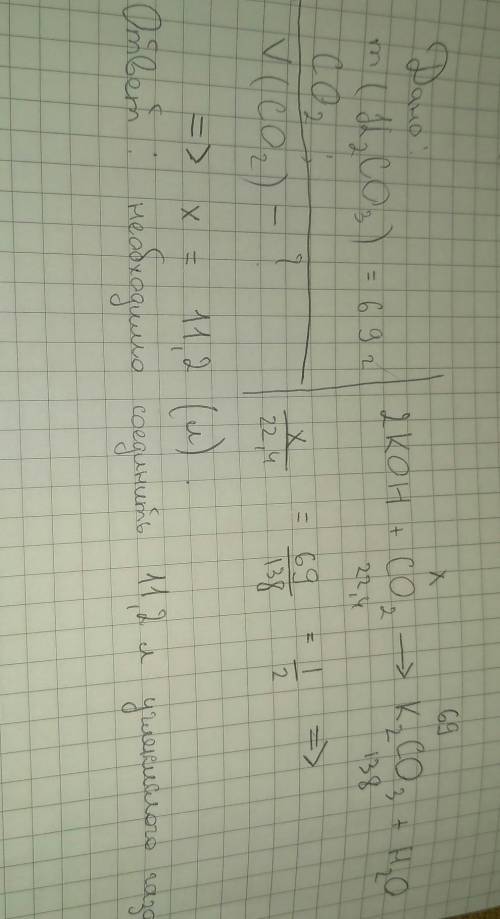 Дано:
m(K₂CO₃) = 69 г
CO₂
V(CO₂) - ?
x 69
2KOH + CO₂ → K₂CO₃ + H₂O
22,4 138
x/22,4 = 69/138 = 1/2 ⇒
⇒ x = 11,2 (л).
Ответ: необходимо соединить 11,2 л углекислого газа